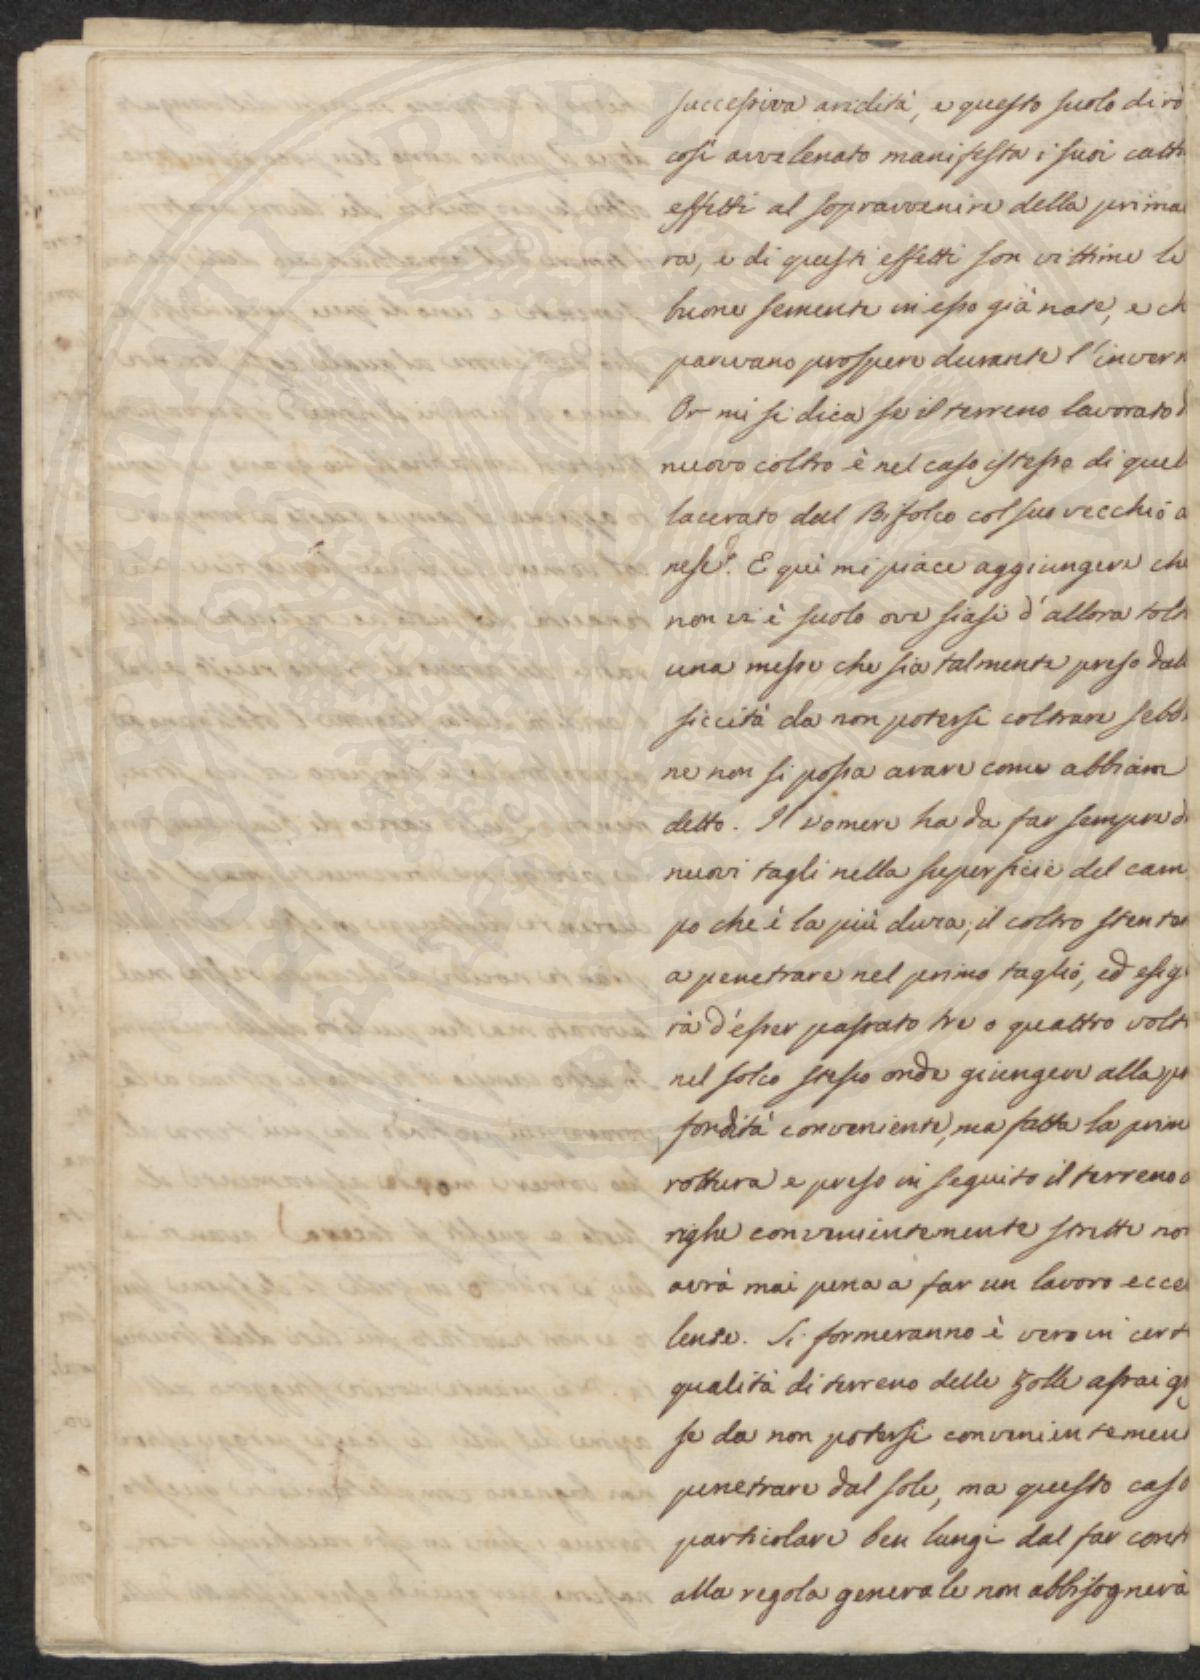 successiva aridità, e questo suolo dirò
così avvelenato manifesta i suoi catti
effetti al sopravvenire della prima
ra, e di questi effetti son vittime le
buone sementi in esso già nate, e ch
parevano prospere durante l'invern
Or mi si dica se il terreno lavorato d
nuovo coltro è nel caso istesso di quel
lacerato dal Bifolco col suo vecchio a
nese. E quì mi piace aggiungere che
non vi è suolo ove siasi d'allora tolt
una messe che sia talmente preso dall
siccità da non potersi coltrare sebb
ne non si possa arare come abbiam
detto. Il vomere ha da far sempre d
nuovi tagli nella superficie del cam
po che è la più dura; il coltro stentar
a penetrare nel primo taglio, ed esig
rà d'esser passato tre o quattro volt
nel solco stesso onde giungere alla pr
fondità conveniente, ma fatta la prim
rottura e preso in seguito il terreno a
righe convenientemente strette non
avrà mai pena a far un lavoro ecce
lente. Si formeranno è vero in cert
qualità di terreno delle zolle assai gr
se da non potersi convenientemen
penetrare dal sole, ma questo caso
particolare ben lungi dal far cont
alla regola generale non abbisognerà